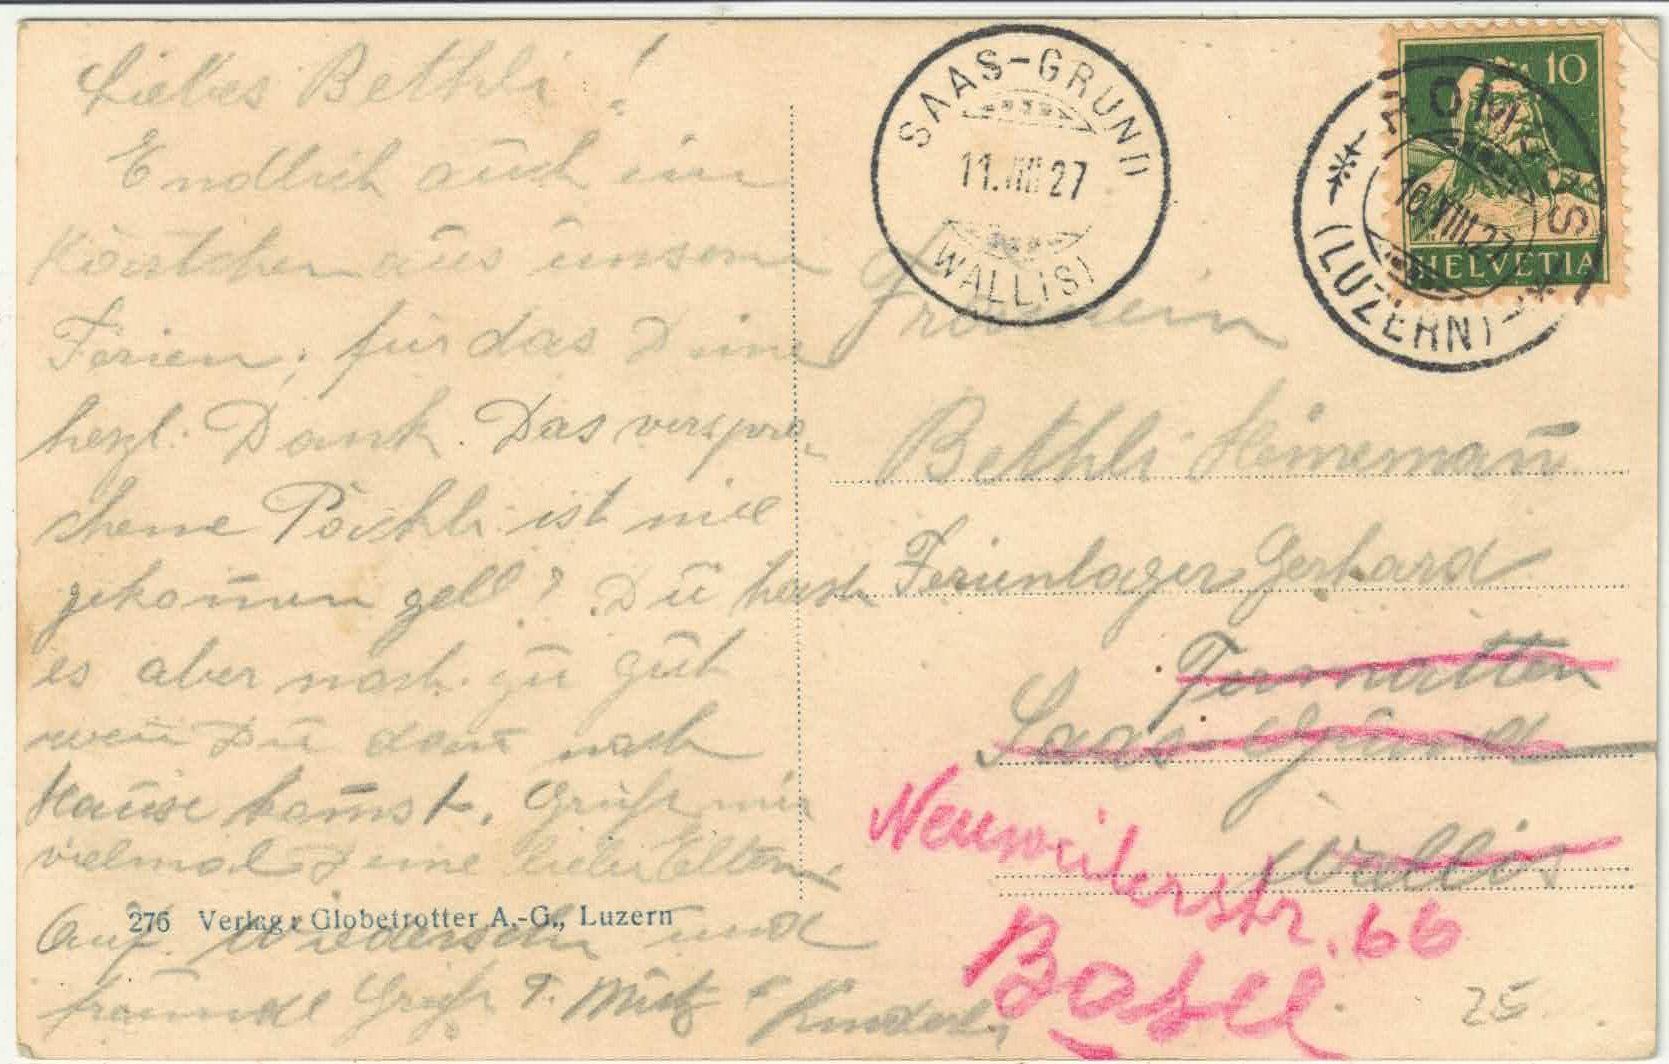 Liebes Bethli!
Endlich auch ein
Kärtchen aus unsern
Ferien, für das Deine
herzl. Dank. Das verspro-
chene Päckli ist nie
gekom̄en gell? Dü hast
es aber noch zu gut
wen̄ Dü dan̄ nach
Hause kom̄st. Grüsse mir
vielmal Deine lieben Eltern.
Auf Wiedersehn und
freundl Grüsse T. Mütz Kinderli
276 Verlag: Globetrotter A.-G., Luzern
SAAS-GRUND
11.VIII 27
(WALLIS)
10
HELVETIA
10.VIII.27
(LUZERN)
Fräulein
Bethli Heineman̄
Ferienlager Gerhard
Tamatten
Saas-Grund
Wallis
Neuweilerstr. 66
Basel
25